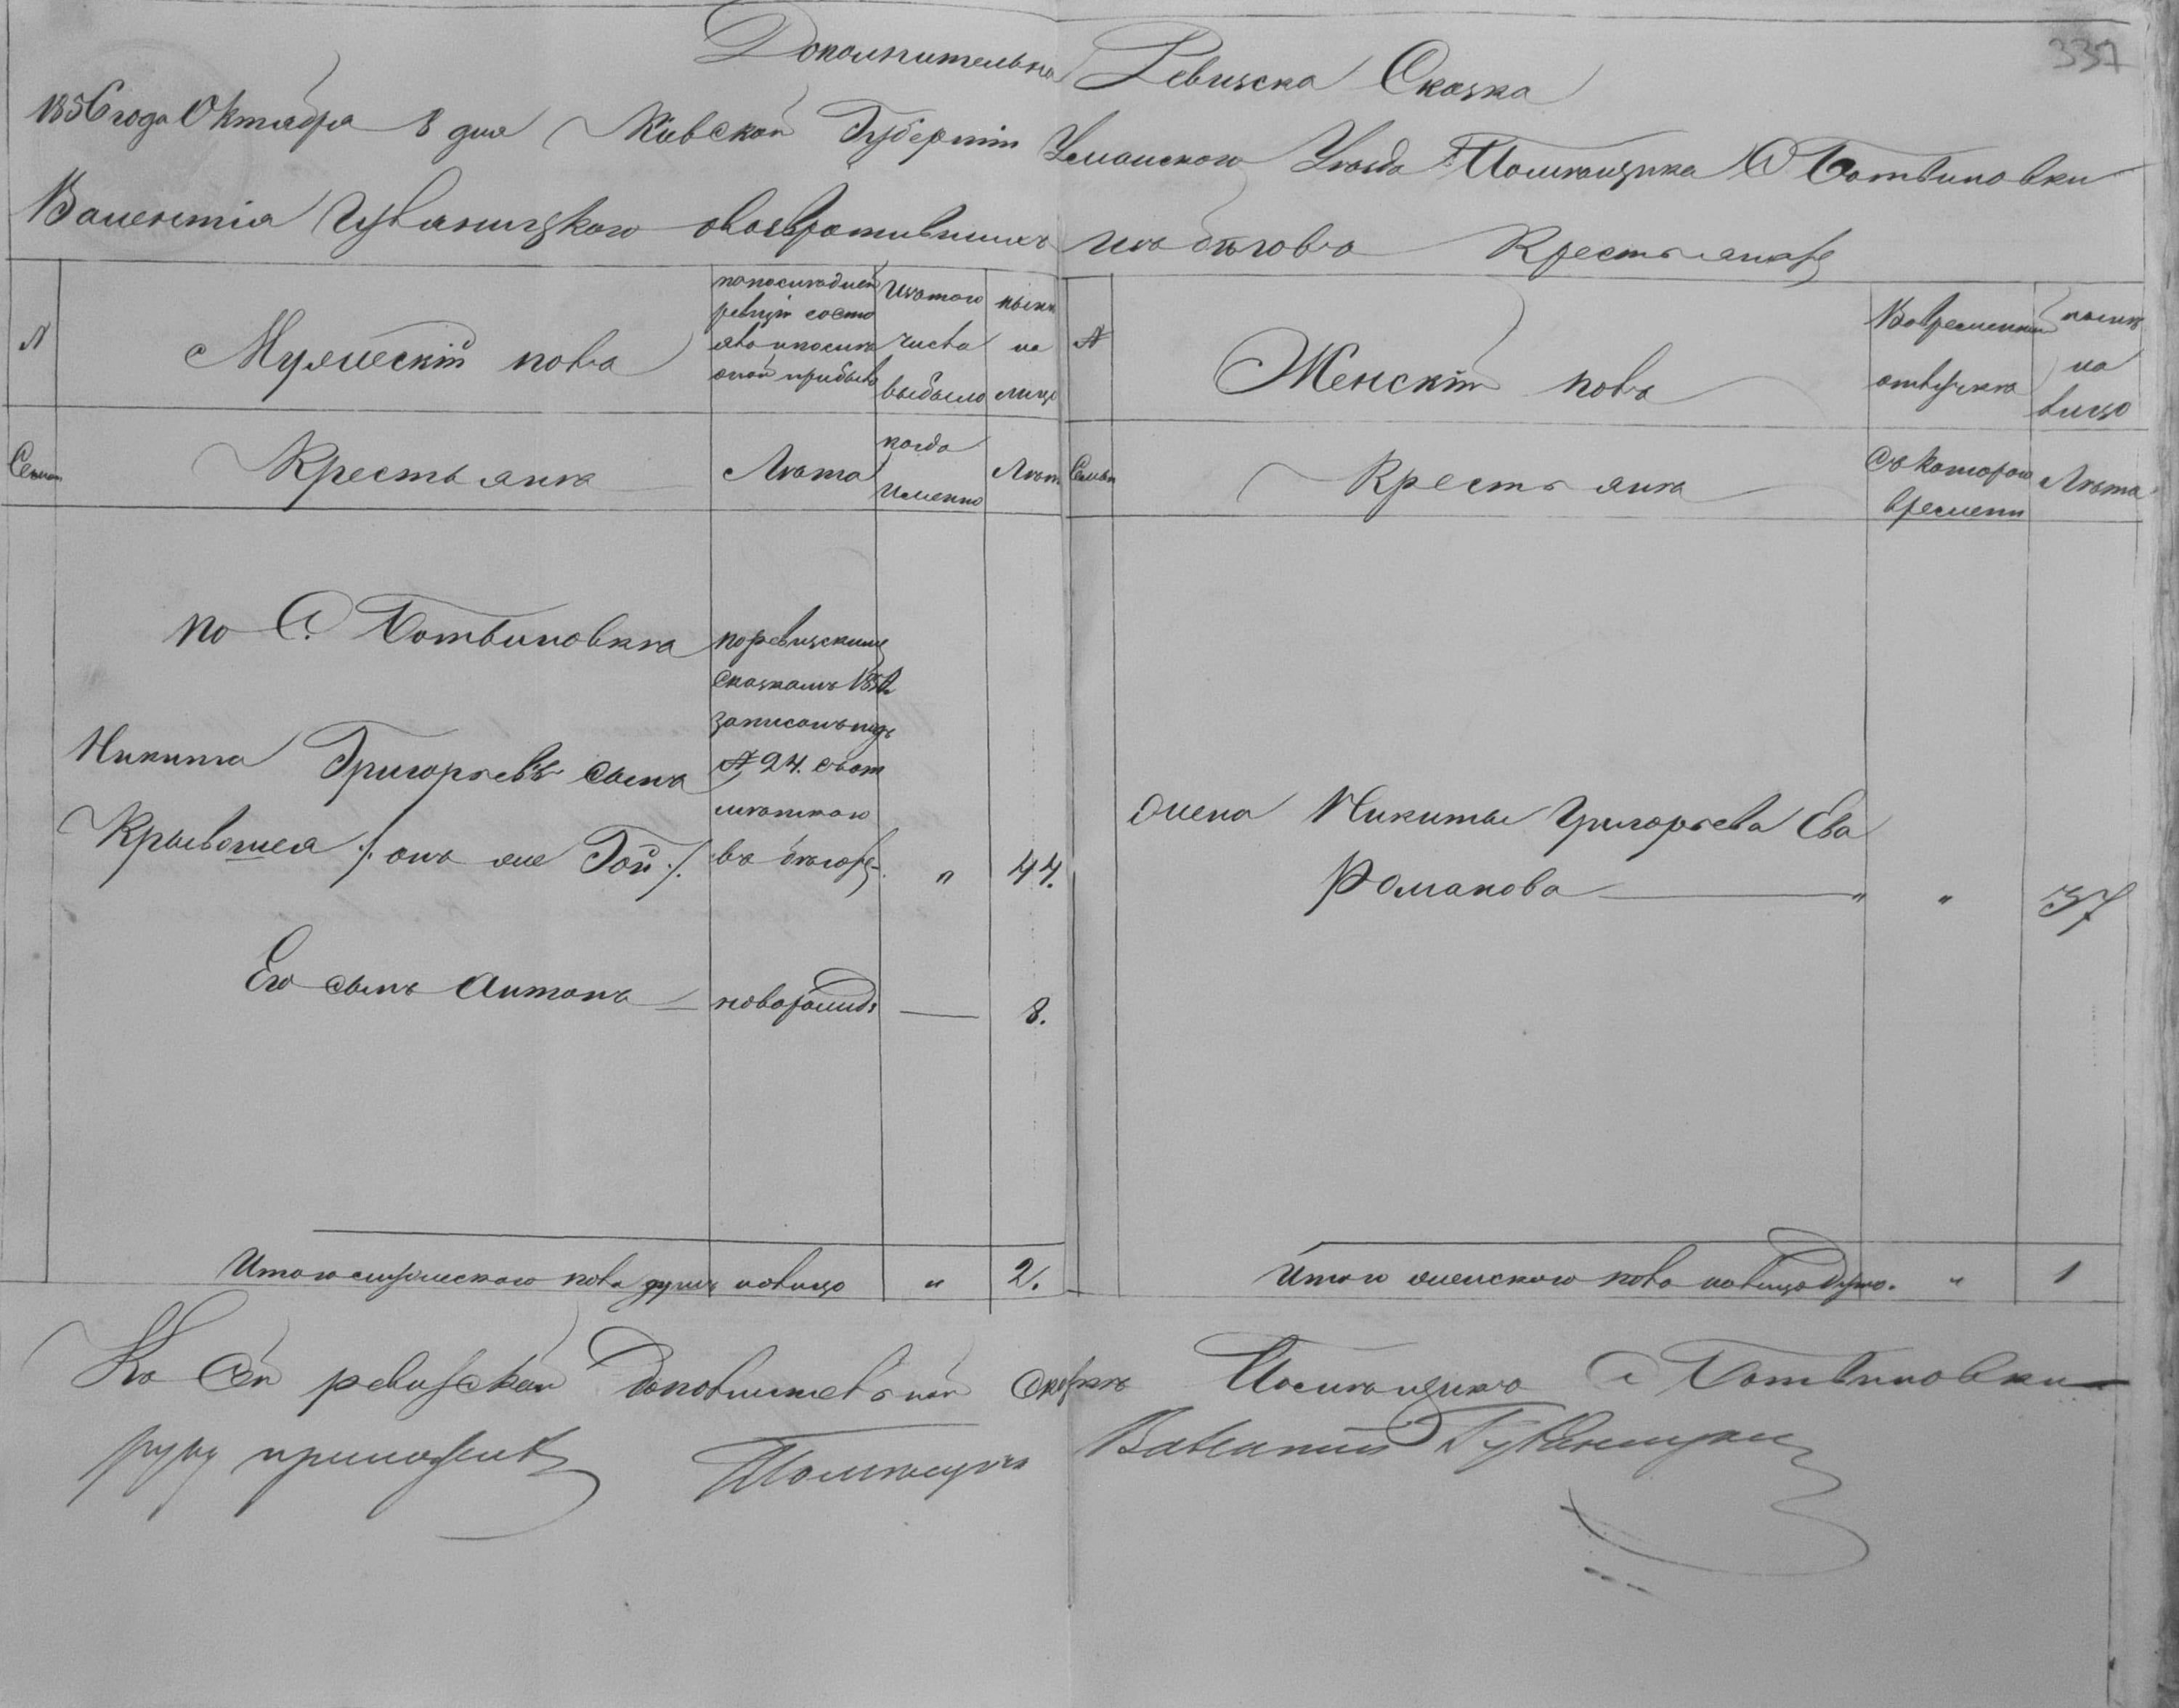 337
Дополнительна Ревизска Сказка
1856 года Октября 8 дня Кіевской Губерніи Уманскаго Уезда Помѣщика С Ботвиновки
Валентія овозвратившихся изъ бѣговъ Крестьянах
№
Мужескій полъ
по последней
ревизіи состо
яло и после
оной прибыло
Изъ того
числа
выбыло
ныне
на
лицо
№
Женскій полъ
Во временной
отлучке
ныне
на
лицо
Семьи
Крестьяне
Лѣта
когда
именно
Лѣта
Семьи
Крестьяне
Съ котораго
времени
Лѣта
по С. Ботвиновкѣ
по ревизскимъ
сказкамъ
записанъ подъ
№ 24. съ от
меткою
въ бѣгахъ
Никита Григорьевъ сынъ
Крывошея /: онъ же Гой :/ " 44.
Жена Никиты Григорьева Ева
Романова " " 37
Его сынъ Антонъ — новорожд: — 8.
Итого мужескаго пола душъ на лицо " 2.
Итого женскаго пола на лицо душъ. " 1
Къ сей ревизской дополнительной сказкѣ Помѣщикъ С Ботвиновки
руку приложилъ Помѣщикъ Валентій